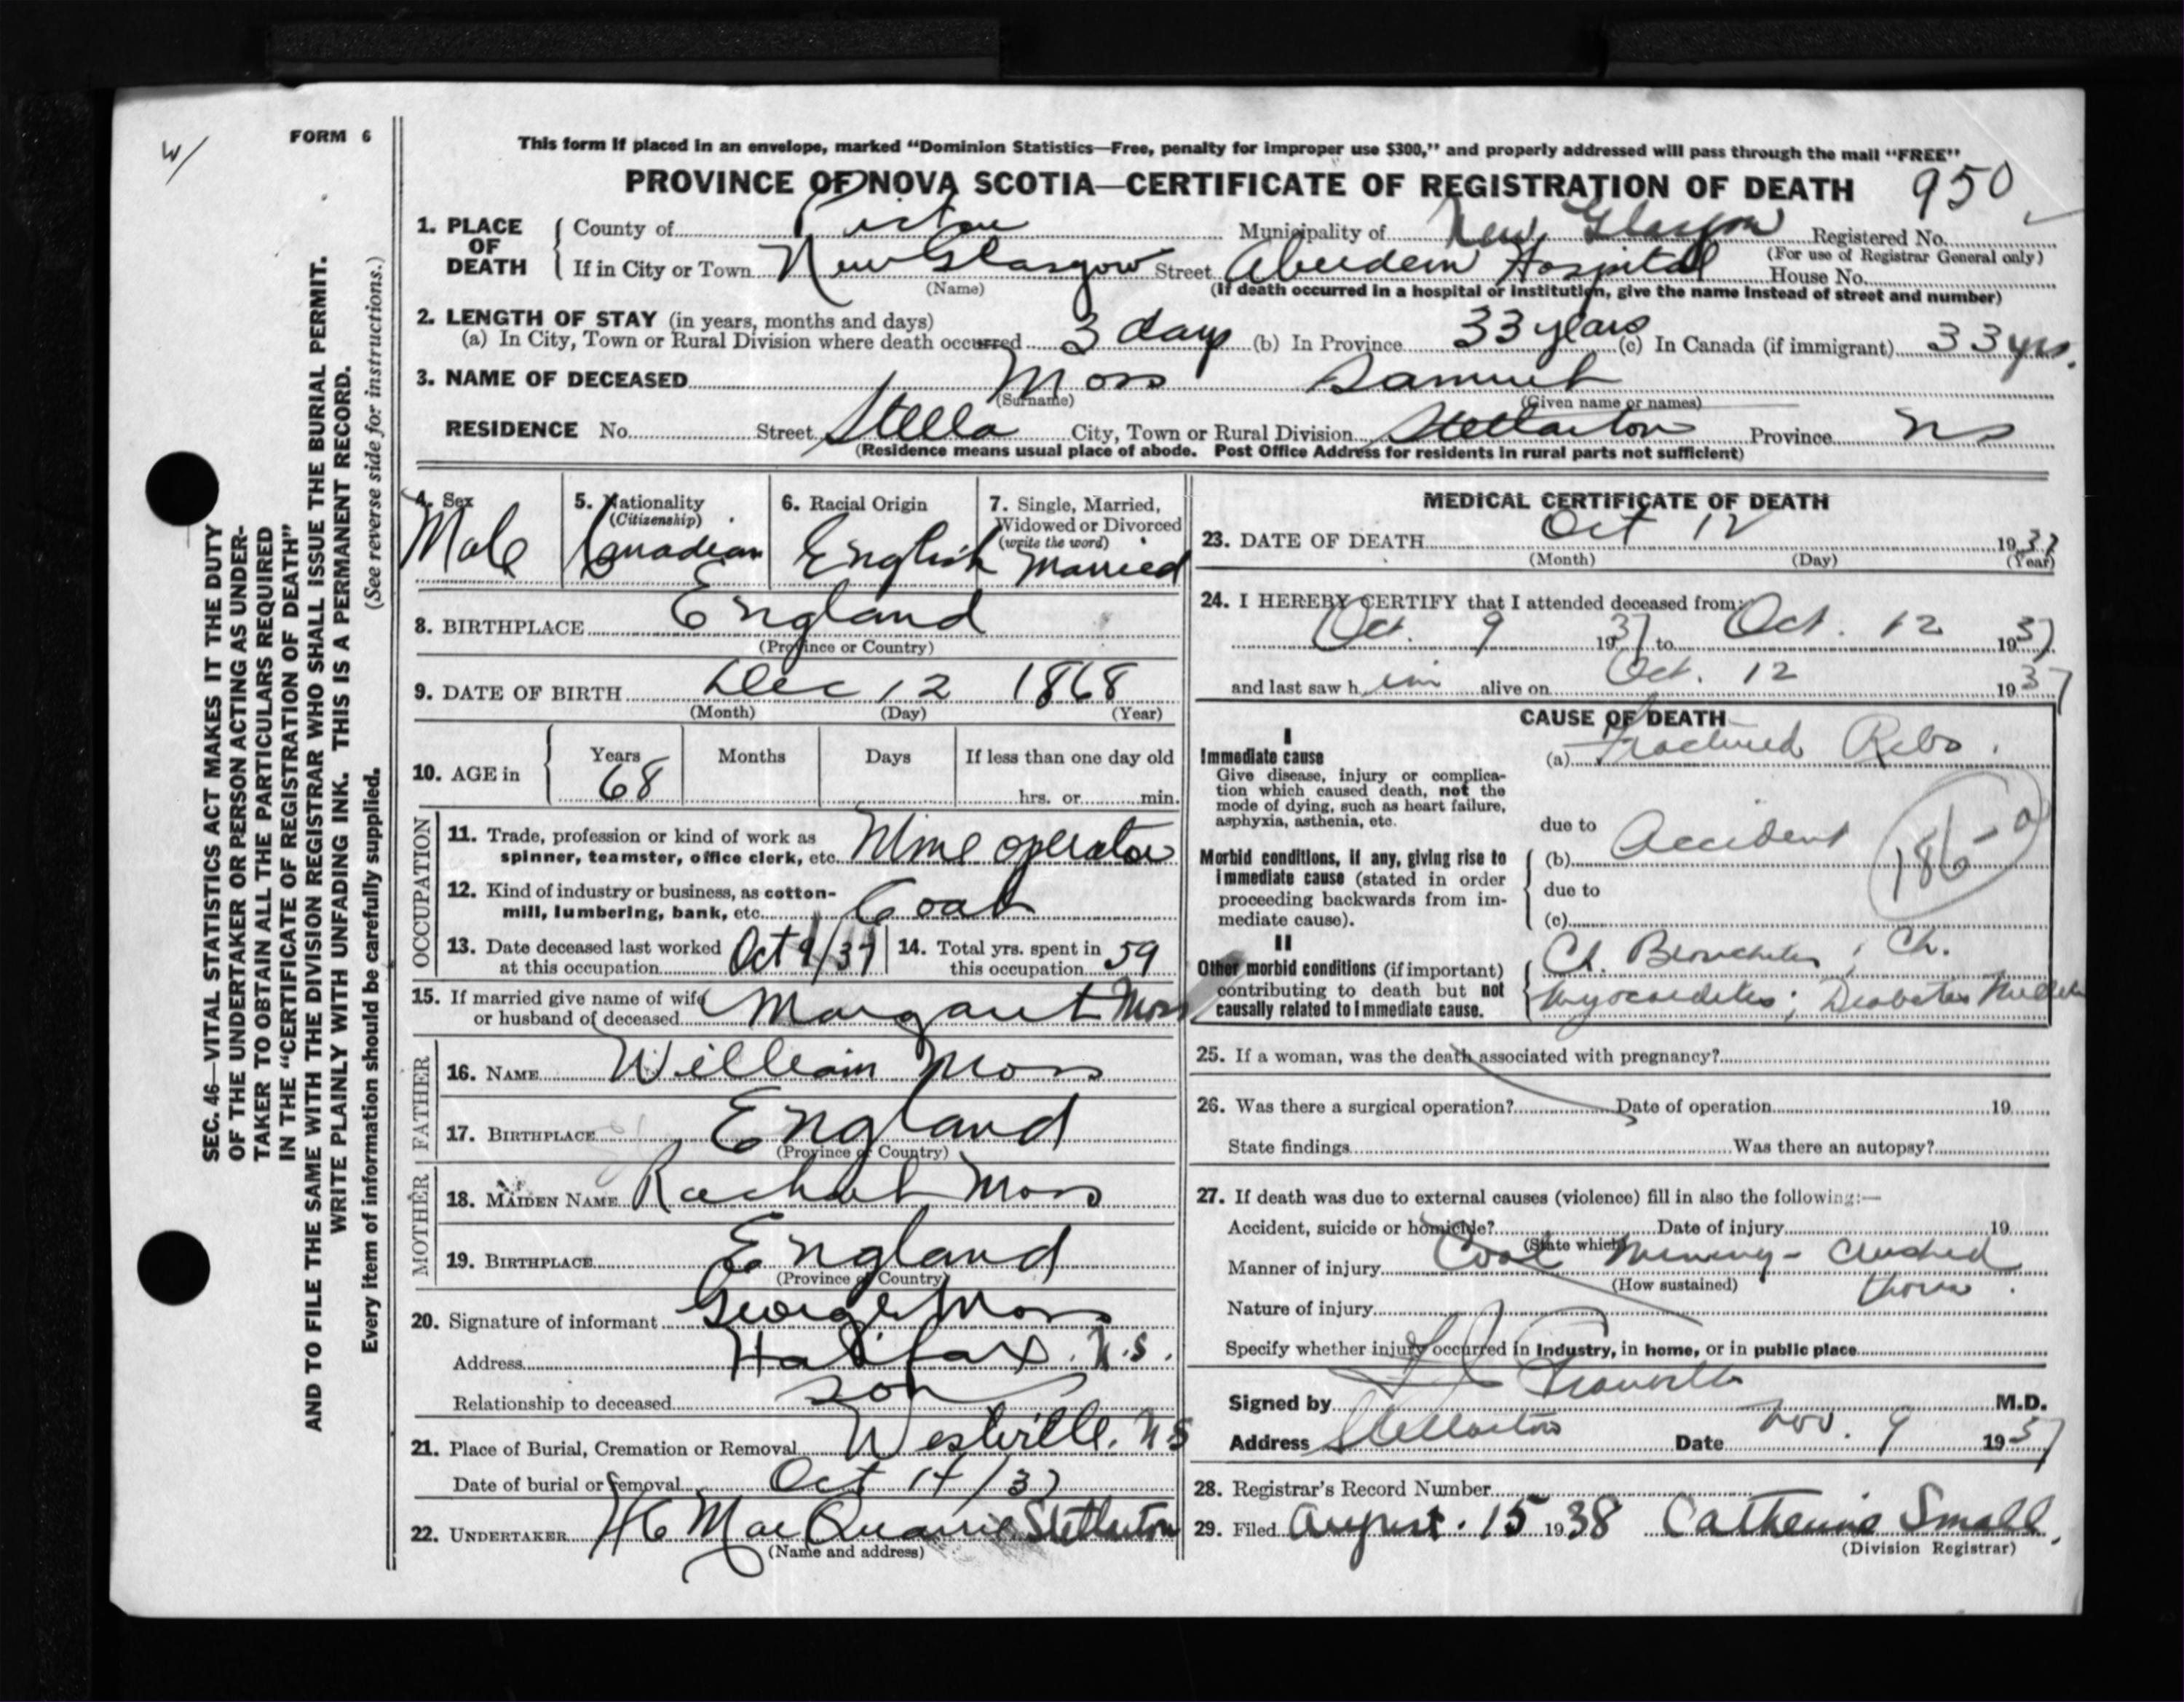 W/
FORM 6
This form if placed in an envelope, marked "Dominion Statistics—Free, penalty for improper use $300," and properly addressed will pass through the mail "FREE"
PROVINCE OF NOVA SCOTIA—CERTIFICATE OF REGISTRATION OF DEATH 950
1. PLACE OF DEATH County of Pictou Municipality of New Glasgow Registered No.
(For use of Registrar General only)
If in City or Town New Glasgow Street Aberdeen Hospital House No.
(Name) (If death occurred in a hospital or institution, give the name instead of street and number)
2. LENGTH OF STAY (in years, months and days)
(a) In City, Town or Rural Division where death occurred 3 days (b) In Province 33 years (c) In Canada (if immigrant) 33 yrs.
3. NAME OF DECEASED Moss Samuel
(Surname) (Given name or names)
RESIDENCE No. Street Stella City, Town or Rural Division Stellarton Province NS
(Residence means usual place of abode. Post Office Address for residents in rural parts not sufficient)
4. Sex Male
5. Nationality (Citizenship) Canadian
6. Racial Origin English
7. Single, Married, Widowed or Divorced (write the word) Married
8. BIRTHPLACE England
(Province or Country)
9. DATE OF BIRTH Dec 12 1868
(Month) (Day) (Year)
10. AGE in Years 68 Months Days If less than one day old
hrs. or min.
OCCUPATION
11. Trade, profession or kind of work as
spinner, teamster, office clerk, etc. Mine operator
12. Kind of industry or business, as cotton-
mill, lumbering, bank, etc. Coal
13. Date deceased last worked
at this occupation Oct 9/37
14. Total yrs. spent in
this occupation 59
15. If married give name of wife
or husband of deceased Margaret Moss
FATHER
16. NAME William Moss
17. BIRTHPLACE England
(Province or Country)
MOTHER
18. MAIDEN NAME Rachael Moss
19. BIRTHPLACE England
(Province or Country)
20. Signature of informant George Moss
Address Halifax, N.S.
Relationship to deceased son
21. Place of Burial, Cremation or Removal Westville, NS
Date of burial or removal Oct 14/37
22. UNDERTAKER H C MacQuarrie Stellarton
(Name and address)
MEDICAL CERTIFICATE OF DEATH
23. DATE OF DEATH Oct 12 1937
(Month) (Day) (Year)
24. I HEREBY CERTIFY that I attended deceased from:
Oct. 9 1937 to Oct. 12 1937
and last saw him alive on Oct. 12 1937
CAUSE OF DEATH
I
Immediate cause
Give disease, injury or complica-
tion which caused death, not the
mode of dying, such as heart failure,
asphyxia, asthenia, etc.
(a) Fractured Ribs.
due to
Morbid conditions, if any, giving rise to
immediate cause (stated in order
proceeding backwards from im-
mediate cause).
(b) Accident
due to
(c)
II
Other morbid conditions (if important)
contributing to death but not
causally related to immediate cause.
Ch. Bronchitis; Ch.
Myocarditis; Diabetes
25. If a woman, was the death associated with pregnancy?
26. Was there a surgical operation? Date of operation 19
State findings Was there an autopsy?
27. If death was due to external causes (violence) fill in also the following:—
Accident, suicide or homicide? Date of injury 19
(State which)
Manner of injury Coal Mining - crushed
(How sustained)
Nature of injury
Specify whether injury occurred in Industry, in home, or in public place
Signed by M.D.
Address Stellarton Date Nov. 9 1937
28. Registrar's Record Number
29. Filed August 15 1938 Catherine Small,
(Division Registrar)
SEC. 46—VITAL STATISTICS ACT MAKES IT THE DUTY
OF THE UNDERTAKER OR PERSON ACTING AS UNDER-
TAKER TO OBTAIN ALL THE PARTICULARS REQUIRED
IN THE "CERTIFICATE OF REGISTRATION OF DEATH"
AND TO FILE THE SAME WITH THE DIVISION REGISTRAR WHO SHALL ISSUE THE BURIAL PERMIT.
WRITE PLAINLY WITH UNFADING INK. THIS IS A PERMANENT RECORD.
Every item of information should be carefully supplied. (See reverse side for instructions.)